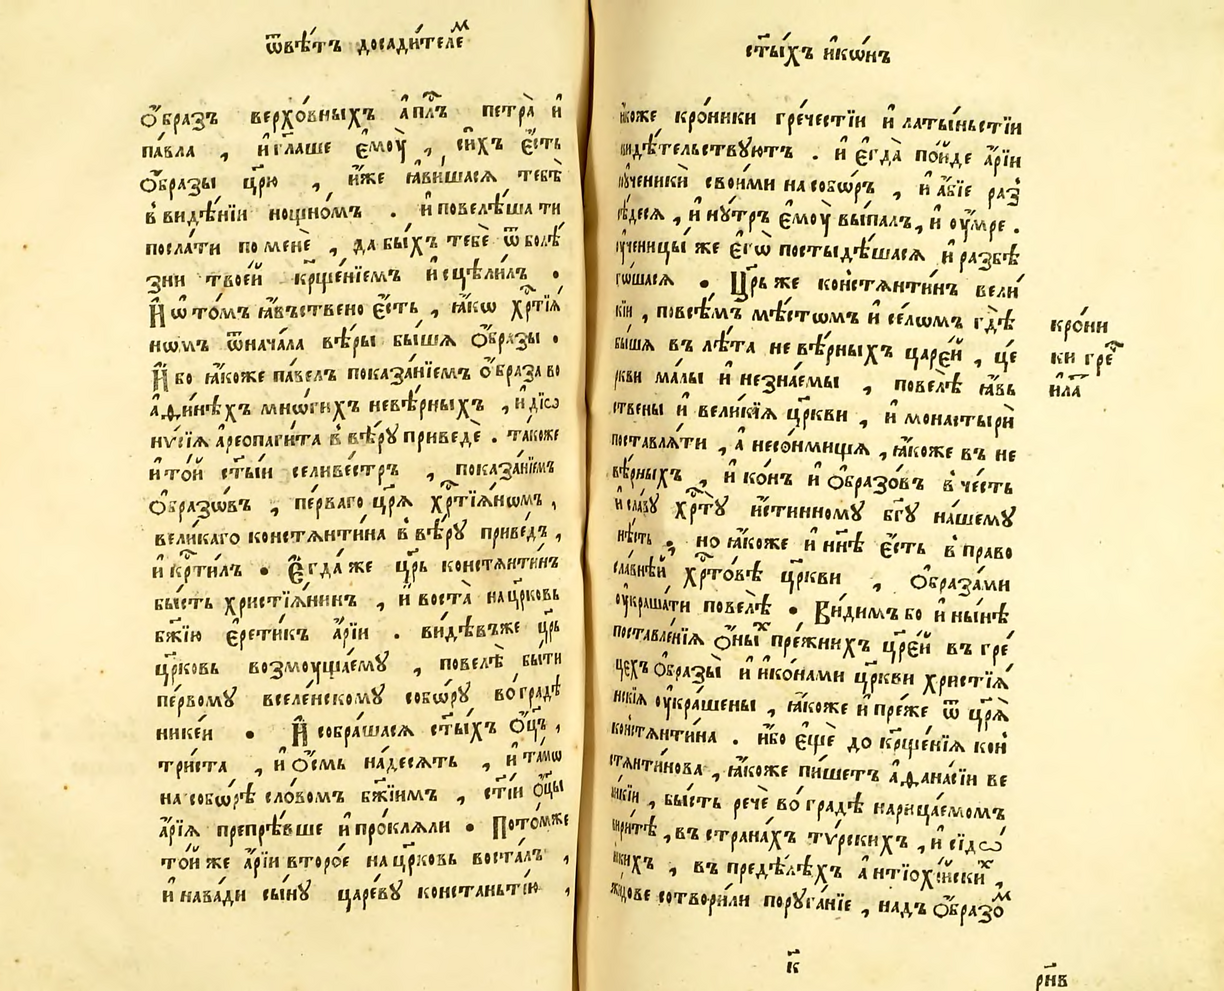 ѿвѣ́тъ досади́телеⷨ
ѻ҆́бразъ верхо́вныхъ а҆пⷭ҇лъ петра̀ и҆
па́вла , и҆ гл҃аше є҆моу̀ , си́хъ є҆́сть
ѻ҆́бразы цр҃ю , и҆́же ꙗ҆ви́шасѧ тебѣ̀
в̾ видѣ́нїи нощно́мъ . и҆ повелѣ́ша ти
посла́ти по менѐ , да бы́хъ тебѐ ѿ болѣ́
зни твоеѝ крⷳ҇е́нїемъ и҆сцѣли́лъ .
И҆ ѡ҆ то́мъ ꙗ҆́вьствено є҆́сть , ꙗ҆́кѡ хрⷭ҇тїѧ́
нѡмъ ѿнача́ла вѣ́ры бы́шѧ ѻ҆́бразы .
И҆́бо ꙗ҆́коже па́велъ показа́нїемъ ѻ҆́браза во
а҆ѳи́нѣхъ мнѡ́гихъ невѣ́рныхъ , и҆ дїѡ
нѵ́сїѧ а҆реопаги́та в̾ вѣ́ру приведѐ . та́коже
и҆ то́й ст҃ы́и селиве́стръ , показа́нїемъ
ѻ҆́бразѡвъ , пе́рваго цр҃ѧ̀ хрⷭ҇тїѧ́нѡмъ ,
вели́каго констѧнти́на в̾ вѣ́ру приве́дъ ,
и҆ крⷭ҇ти́лъ . Є҆гда́ же цр҃ь констѧнти́нъ
бы́сть христїѧ́нинъ , и҆ воста̀ на цр҃ковь
бж҃їю є҆рети́къ а҆́рїи . ви́дѣвъже цр҃ь
цр҃ковь возмоуща́ему , повелѣ̀ бы́ти
пе́рвому вселе́нскому собѡ́ру во гра́дѣ
нике́и . И҆ собра́шасѧ ст҃ы́хъ ѻ҆ц҃ъ ,
три́ста , и҆ ѻ҆́смь на́десѧть , и҆ та́мѡ
на собѡ́рѣ сло́вомъ бж҃їимъ , ст҃і́и ѻ҆ц҃ы
а҆́рїѧ препрѣ́вше и҆ про́клѧли . Пото́мже
то́й же а҆́рїи второ́е на цр҃ковь воста́лъ ,
и҆ нава́ди сы́ну царе́ву констаньті́ю ,
ст҃ы́хъ и҆кѡ́нъ
ꙗ҆́коже кро́ники гре́честїи и҆ латы́ньстїи
видѣ́тельствꙋютъ . и҆ є҆гда̀ по́йде а҆́рїи
оу҆ченикѝ свои́ми на собѡ́ръ , и҆ а҆́бїе раз̾
сѣ́десѧ , и҆ ну́тръ є҆моу̀ вы́палъ , и҆ оу҆́мре .
оу҆ченицы́ же є҆гѡ̀ постыдѣ́шасѧ и҆ разбѣ
го́шасѧ . Цр҃ь же констѧнти́нъ вели́
кїи , по всѣ́мъ мѣ́стѡмъ и҆ се́лѡмъ гдѣ̀
бы́шѧ въ лѣ́та не вѣ́рныхъ царе́й , це́
ркви ма́лы и҆ незна́емы , повелѣ̀ ꙗ҆́вь
ствены и҆ вели́кїѧ цр҃кви , и҆ монастырѝ
поставлѧ́ти , а҆ несо́нмища , ꙗ҆́коже въ не
вѣ́рныхъ , и҆ ко́нъ и҆ ѻ҆́бразо́въ в̾ че́сть
и҆ сла́ву хрⷭ҇ту̀ и҆́стинному бг҃у на́шему
нѣ́сть . но ꙗ҆́коже и҆ нн҃ѣ є҆́сть в̾ право
сла́внѣй хрⷭ҇то́вѣ цр҃кви , ѻ҆́браза́ми
оу҆краша́ти повелѣ̀ . Ви́димъ бо и҆ ны́нѣ
поставле́нїѧ ѻ҆́ныⷯ пре́жнихъ цр҃е́й въ гре́
цехъ ѻ҆́бразы̀ и҆ и҆ко́нами цр҃кви христїѧ́
нскїѧ оу҆кра́шены , ꙗ҆́коже и҆ пре́же ѿ цр҃ѧ̀
констѧнти́на . и҆́бо є҆щѐ до крⷳ҇е́нїѧ кон̾
стѧнти́нова , ꙗ҆́коже пи́шетъ а҆ѳана́сїи ве
ли́кїи , бы́сть речѐ во гра́дѣ нарица́емомъ
вири́тѣ , въ страна́хъ тѵ́рскихъ , и҆ сїдѡ
нскихъ , въ предѣ́лѣхъ а҆нтїохі́искиⷯ ,
жи́дове сотвори́ли поруга́нїе , надъ ѻ҆́бразоⷨ
кро́ни
ки греⷱ
и҆ лаⷮ
к҃
рн҃в